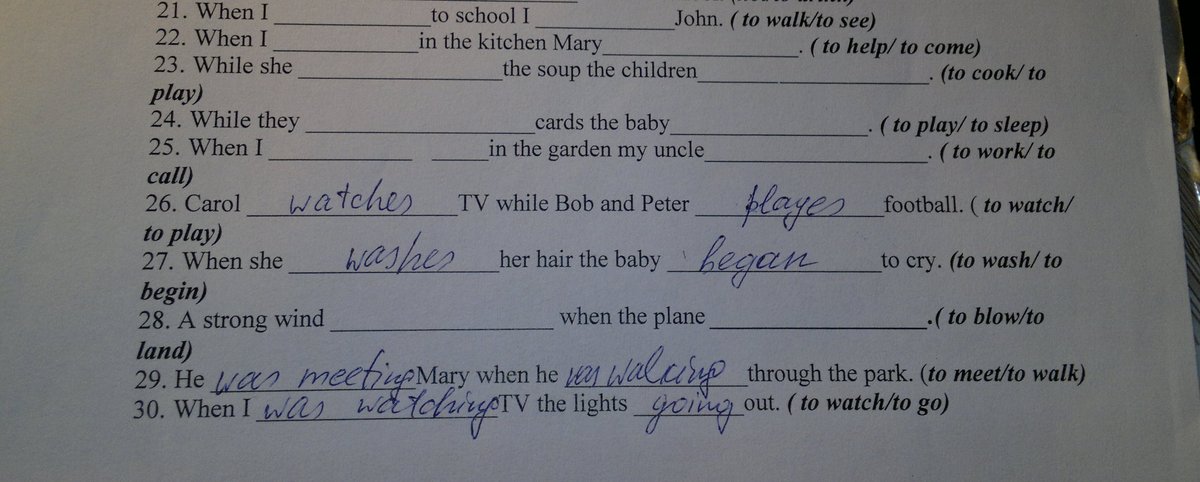 21. When I ______________to school I ____________John. ( to walk/to see)
22. When I _____________in the kitchen Mary_________________. ( to help/ to come)
23. While she __________________the soup the children_____________________. (to cook/ to
play)
24. While they _____________________cards the baby__________________. ( to play/ to sleep)
25. When I _____________ _____in the garden my uncle____________________. ( to work/ to
call)
26. Carol watches TV while Bob and Peter playes football. ( to watch/
to play)
27. When she washes her hair the baby began to cry. (to wash/ to
begin)
28. A strong wind ____________________ when the plane ____________________.( to blow/to
land)
29. He was meeting Mary when he was walking through the park. (to meet/to walk)
30. When I was watching TV the lights going out. ( to watch/to go)